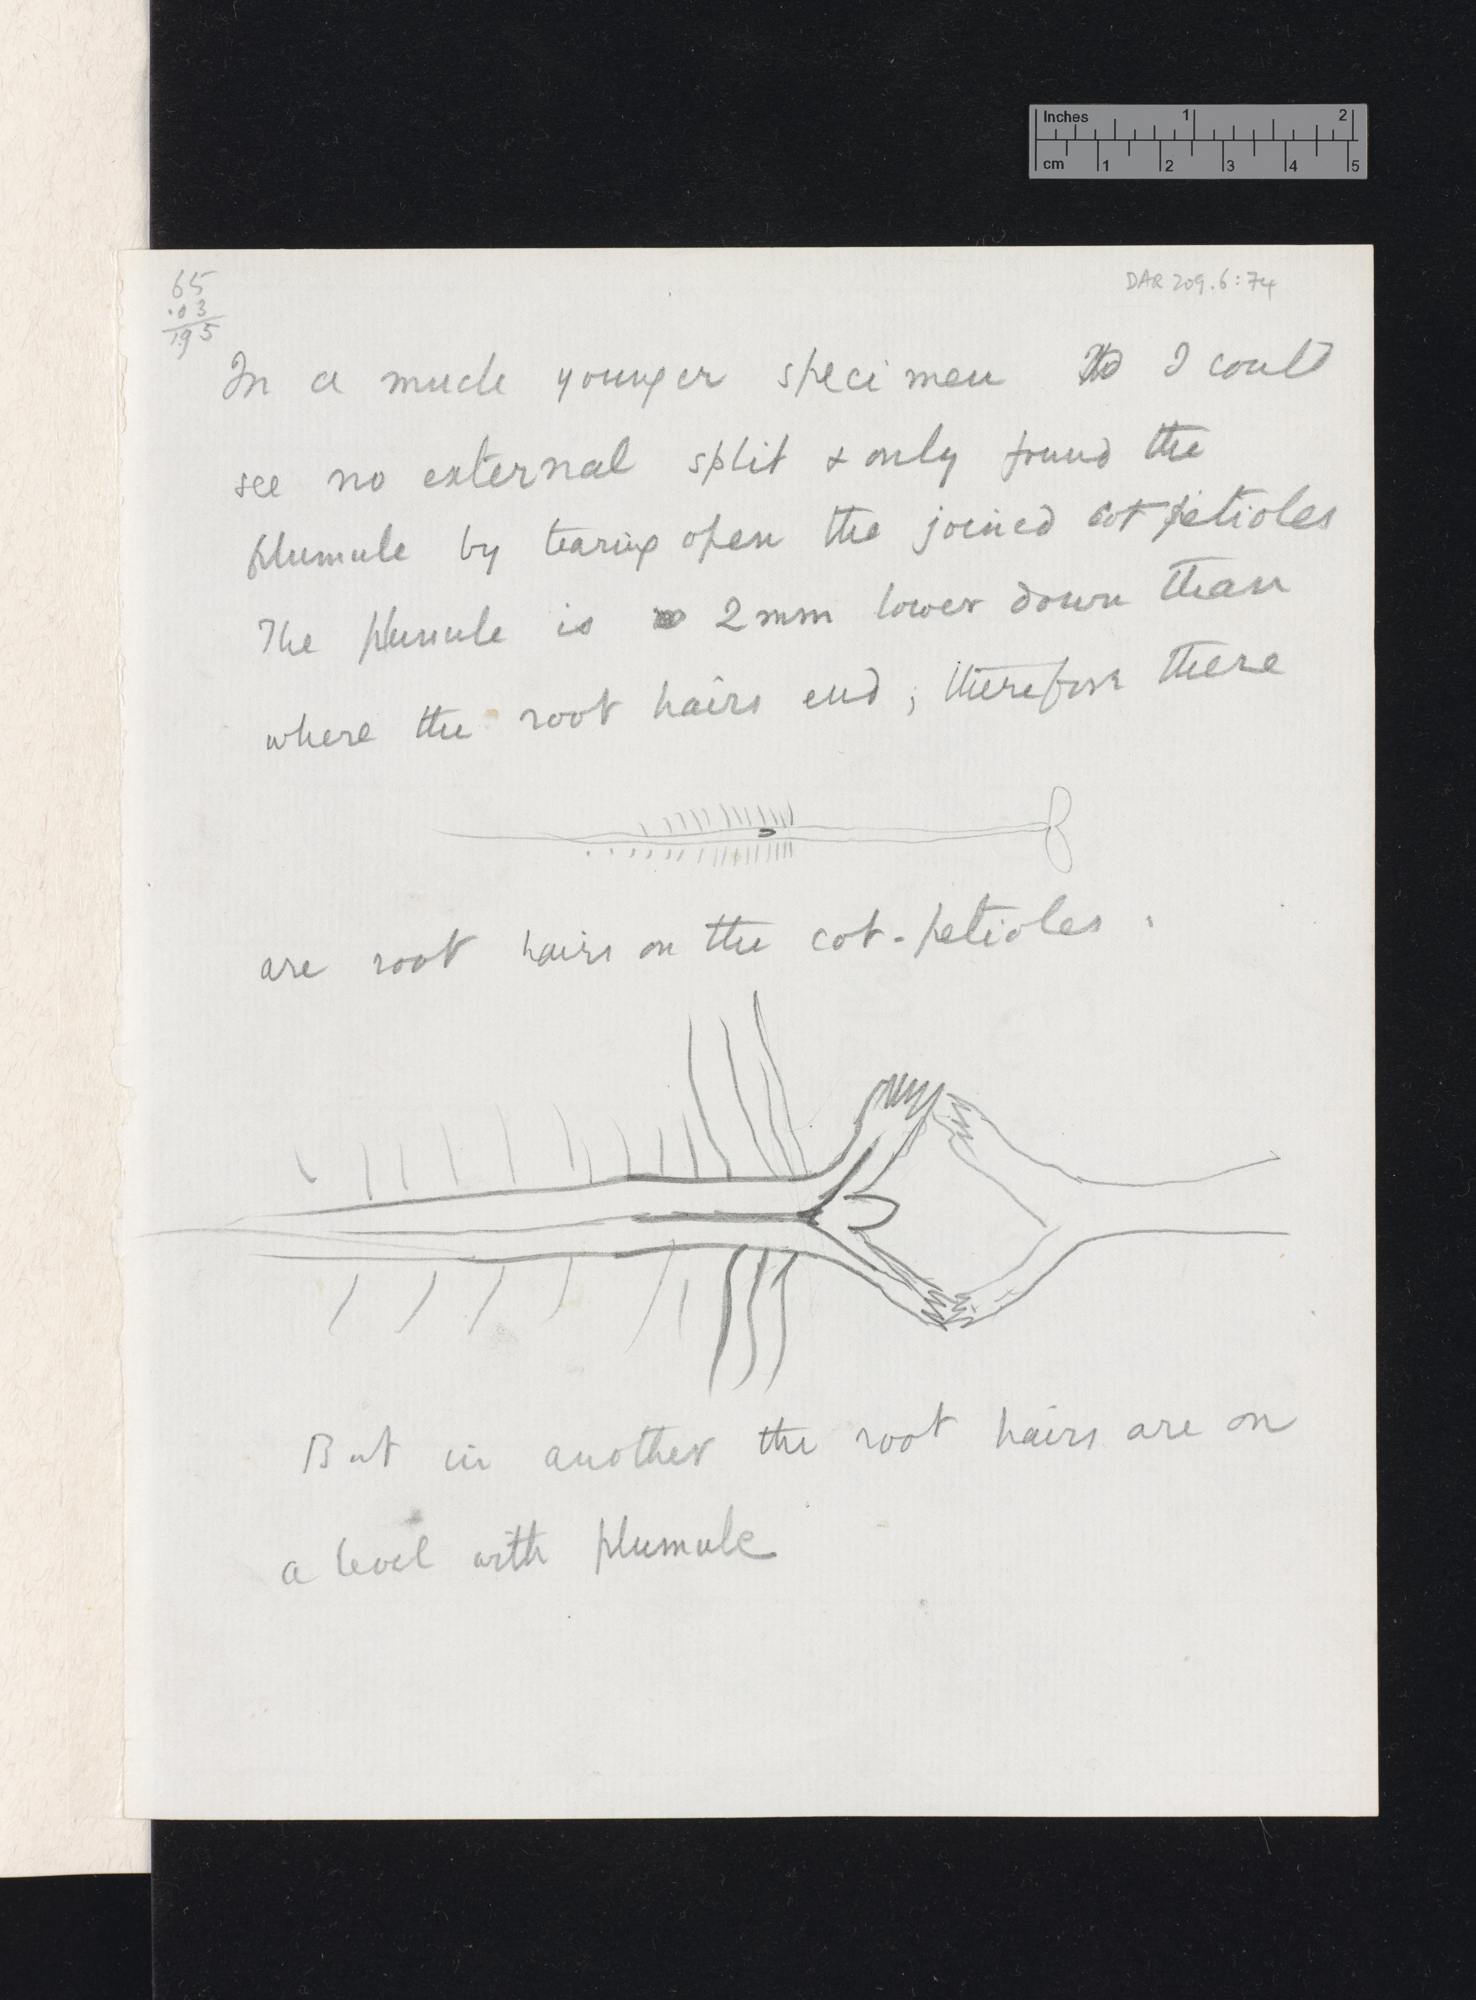 Inches 1 2
cm 1 2 3 4 5
DAR 209.6:74
65
.03
195
In a much younger specimen I could
see no external split & only found the
plumule by tearing open the joined cot petioles
The plumule is 2mm lower down than
where the root hairs end; therefore there
are root hairs on the cot-petioles.
But in another the root hairs are on
a level with plumule